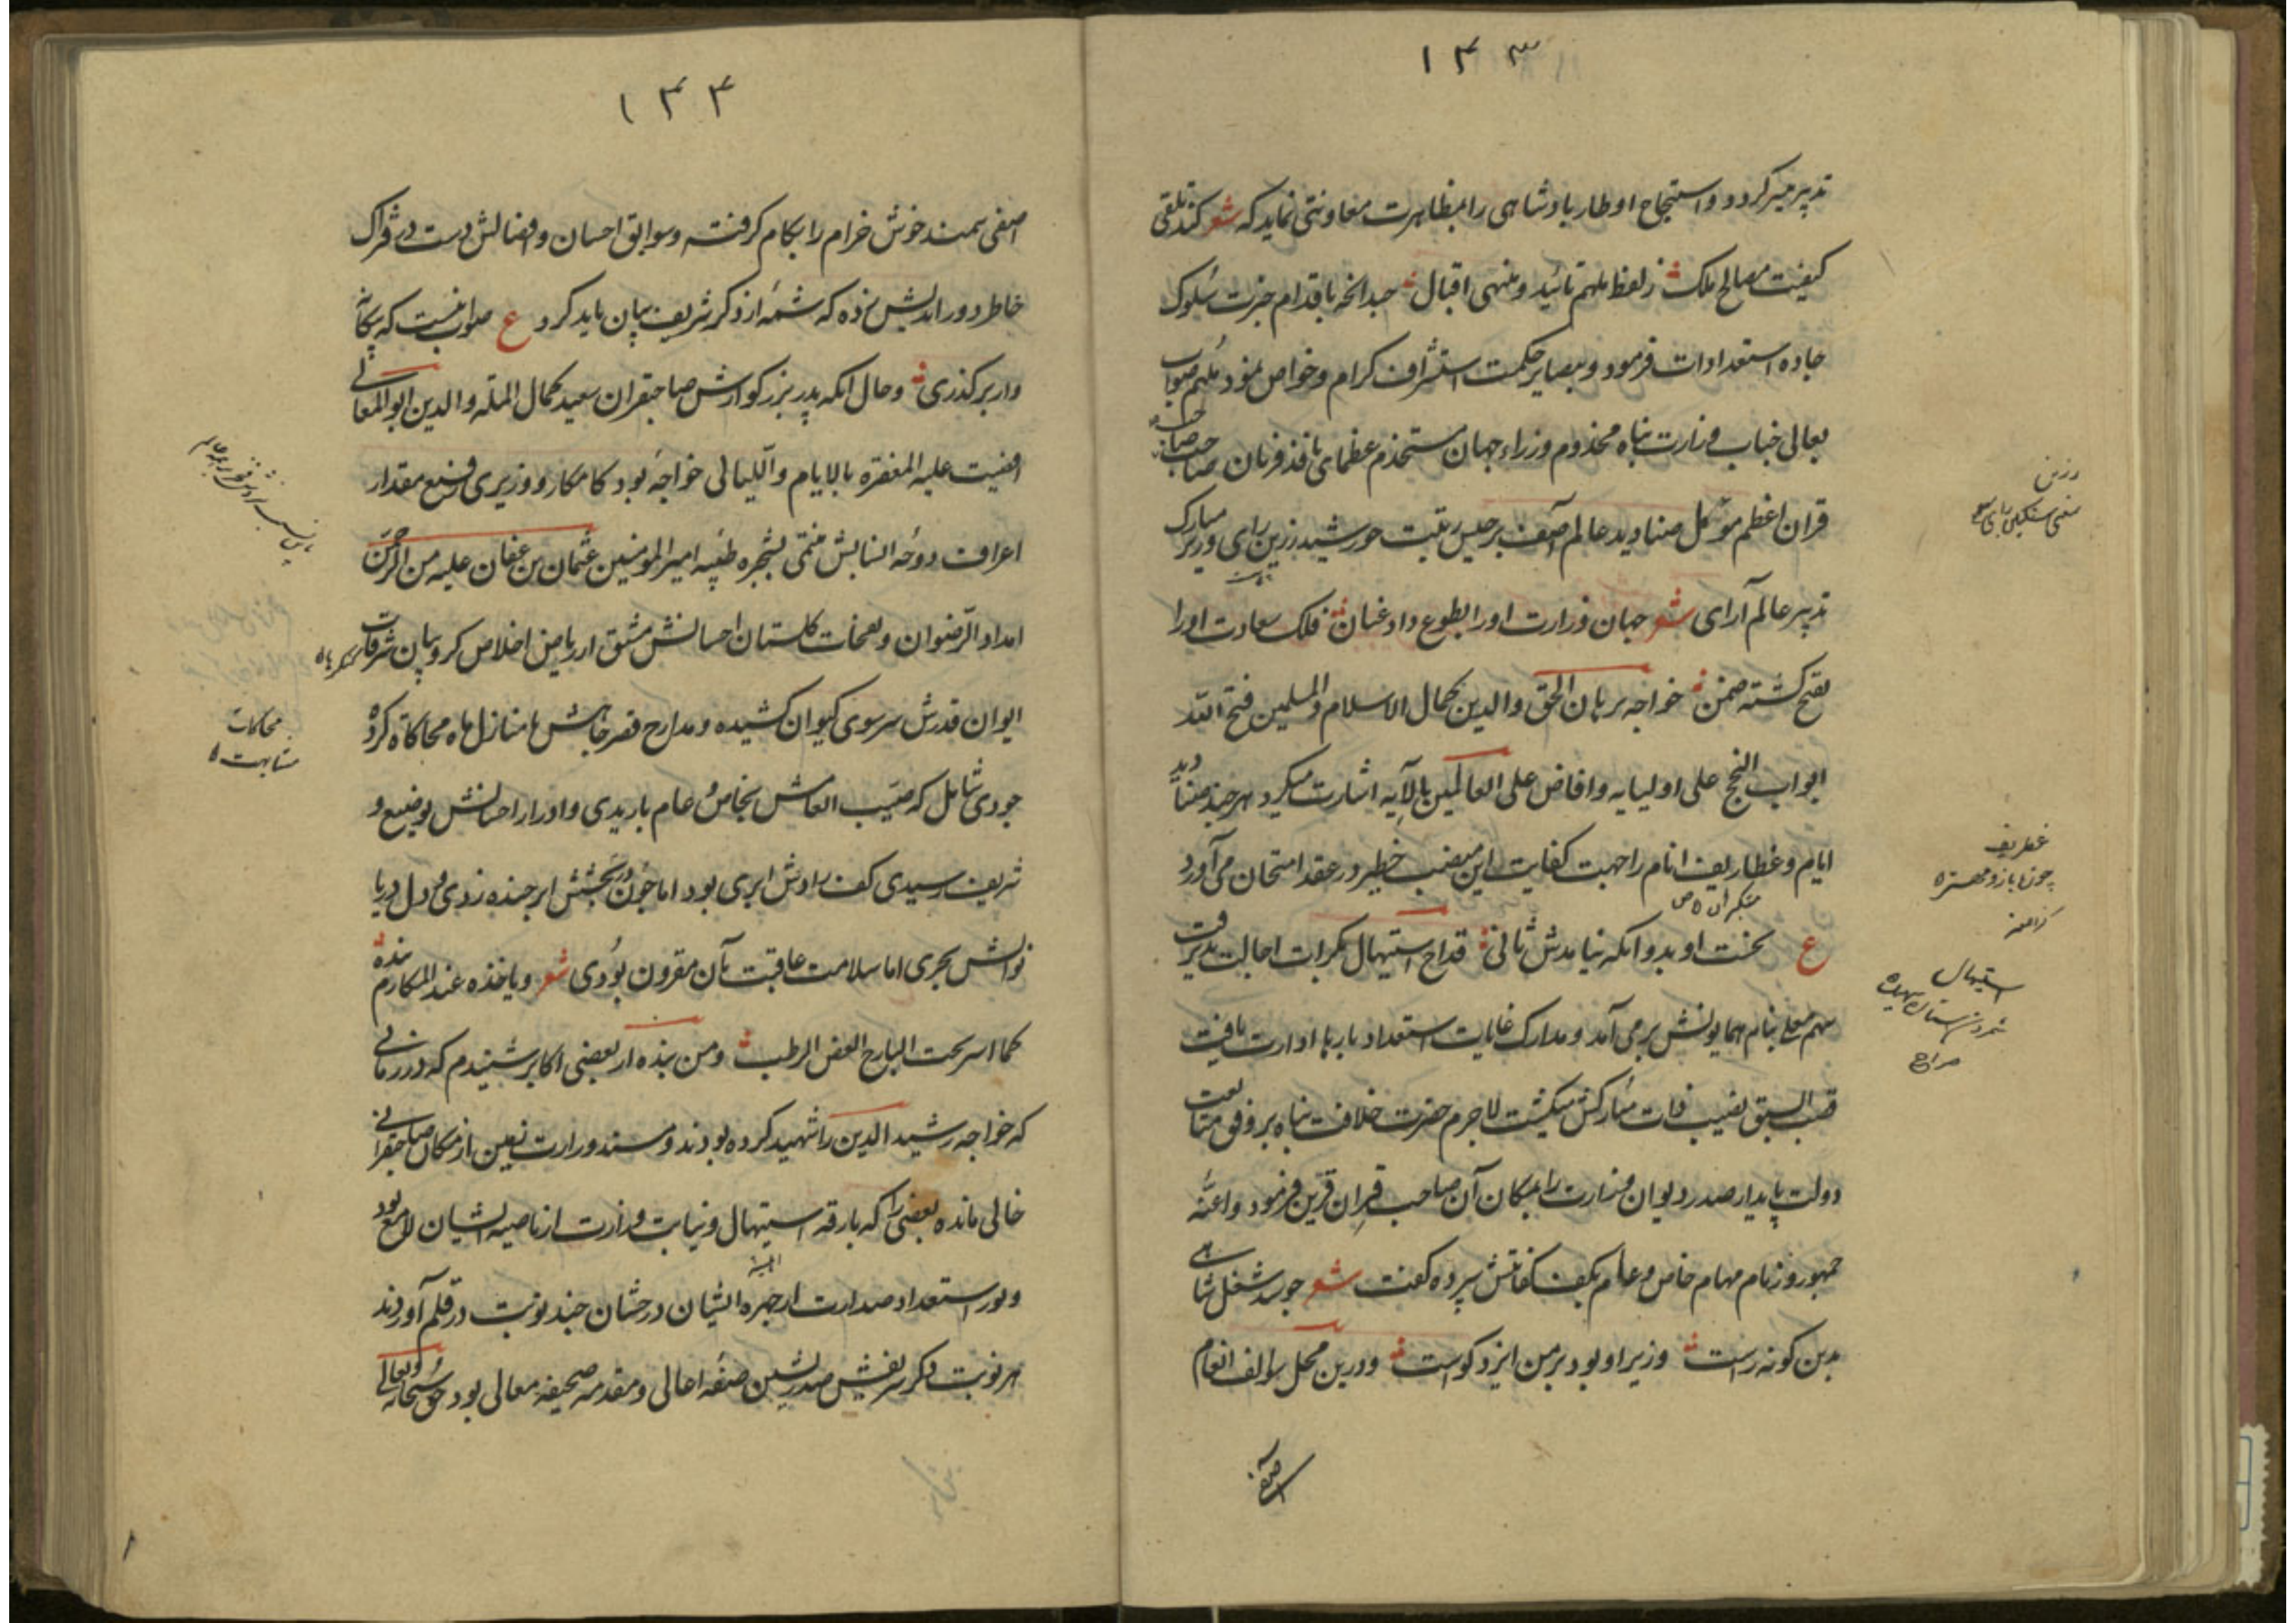 ۱۴۳
تدبیر میسر کردد و استنجاح اوطار پادشاهی را بمظاهرت معاونتی نماید که شعر کند تلقی
کیفیت مصالح ملک ز لفظ ملهم تائید و منهی اقبال باقدام حبرت سلوک
جاده استعدادات فرمود و ببصایر حکمت استشراف کرام و خواص نمود ملهم صواب
بعالی جناب وزارت پناه مخدوم وزراء جهان مستخدم عظمای نافذ فرمان صاحب
قران اعظم موکل صنادید عالم آصف برجیس رتبت خورشید رزین رای وزیر مبارک
تدبیر عالم آرای شعر جهان وزارت او را بطوع داد عنان فلک سعادت او را
بفتح کشته ضمن خواجه برهان الحق والدین کمال الاسلام والمسلمین فتح الله
ابواب النجح علی اولیایه وافاض علی العالمین بالآیه اشارت میکرد هرچند صنادید
ایام و غطاریف انام را جهت کفایت این منصب خطیر در عقد امتحان می آورد
ع بخت او بد و انکه نیامدش ثانی قداح استیهال بکرات اجالت پذیرفت
سهم معلی بنام همایونش برمی آمد و مدارک غایات استعداد بارها ادارت یافت
قصب السبق نصیب ذات مبارکش میکشت لاجرم حضرت خلافت پناه بر وفق متابعت
دولت پایدار صدر دیوان وزارت را بمکان آن صاحب قران قرین فرمود و اعنه
جمهور و زمام مهام خاص و عام بکف کفایتش سپرده کفت شعر چو بد شغل شاهی
بدین کونه راست وزیر او بود بر من ایزد کواست و درین محل سوالف انعام
اصفی
رزین
غطریف
استیهال
۱۴۴
اصفی سمند خوش خرام را بکام کرفته و سوابق احسان و افضالش دست در فتراک
خاطر دور اندیش زده که شمه از ذکر شریف بیان باید کرد ع صواب نیست که بیکانه
وار برکذری و حال انکه پدر بزرکوارش صاحبقران سعید کمال الملة والدین ابوالمعالی
افضیت علیه المغفره بالایام واللیالی خواجه بود کامکار و وزیری رفیع مقدار
اعراف دوحه انسابش منتمی بشجره طیبه امیر المومنین عثمان بن عفان علیه من الرحمن
امداد الرضوان و نفحات کلستان احسانش مشق از ریاض اخلاص کروبیان شرفات
ایوان قدرش سر سوی کیوان کشیده و مدارج قصر جاهش با منازل ماه محاکاة کرده
جودی شامل که صیب انعامش بخاص و عام باریدی و ادرار احسانش بوضیع و
شریف رسیدی کف رادش ابری بود اما چون در بخشش ابر خنده زدی و دل دریا
نوالش بحری اما سلامت عاقبت بآن مقرون بودی شعر ویاخذه عند المکارم
کما اسرحت البارح الغصن الرطب و من بنده از بعضی اکابر شنیدم که در زمانی
که خواجه رشید الدین را شهید کرده بودند و مسند وزارت تعین از مکان صاحبقرانی
خالی مانده بعضی را که بارقه استیهال و نیابت وزارت از ناصیه ایشان لامع بود
و نور استعداد صدارت از جهره ایشان درخشان چند نوبت در قلم آوردند
هر نوبت ذکر شریفش صدرنشین صفه اعالی و مقدمه صحیفه معالی بود حق سبحانه وتعالی
محاکات
مشابهت